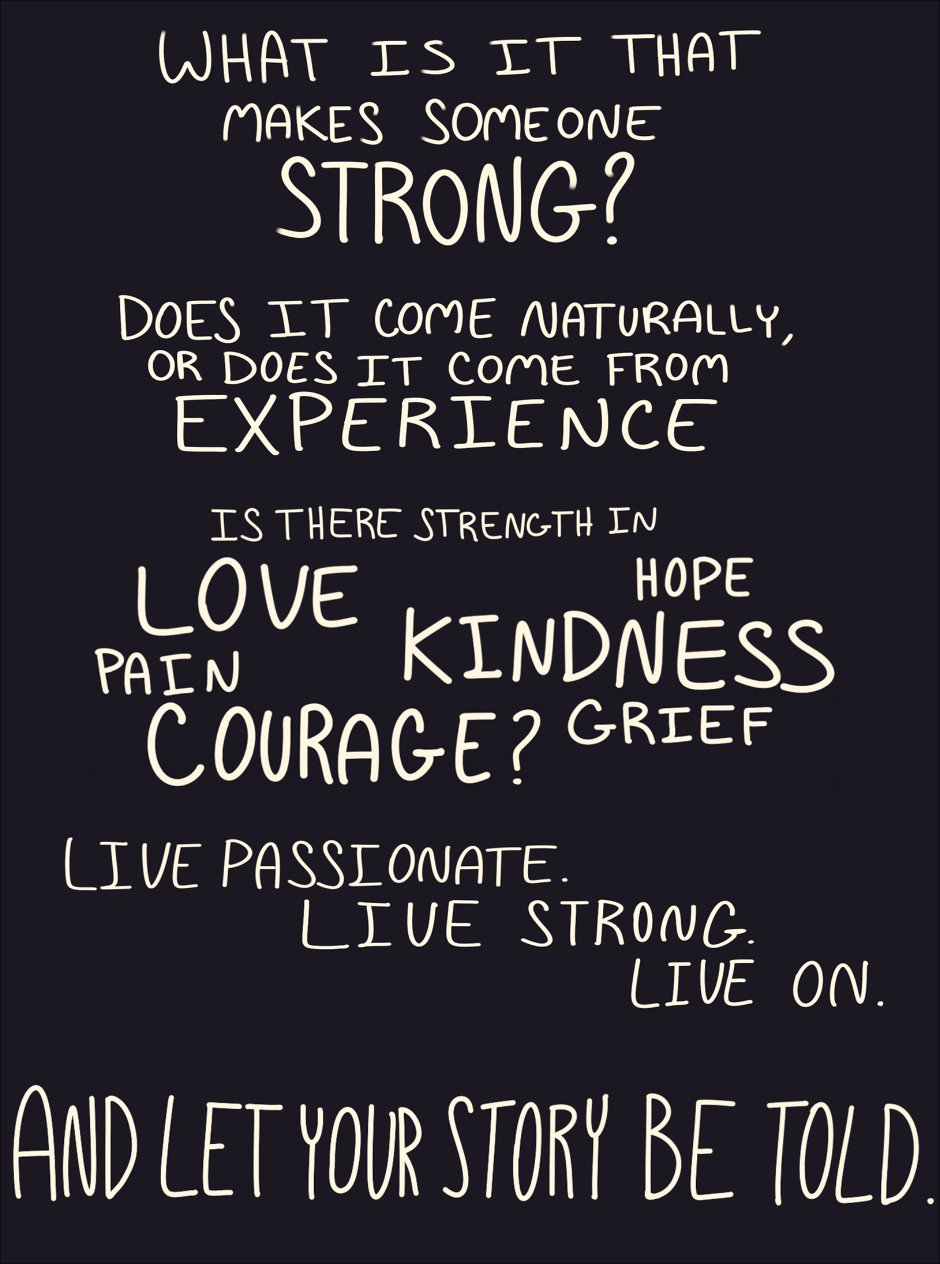 WHAT IS IT THAT
MAKES SOMEONE
STRONG?
DOES IT COME NATURALLY,
OR DOES IT COME FROM
EXPERIENCE
IS THERE STRENGTH IN
LOVE
HOPE
KINDNESS
PAIN
GRIEF
COURAGE?
LIVE PASSIONATE.
LIVE STRONG.
LIVE ON.
AND LET YOUR STORY BE TOLD.